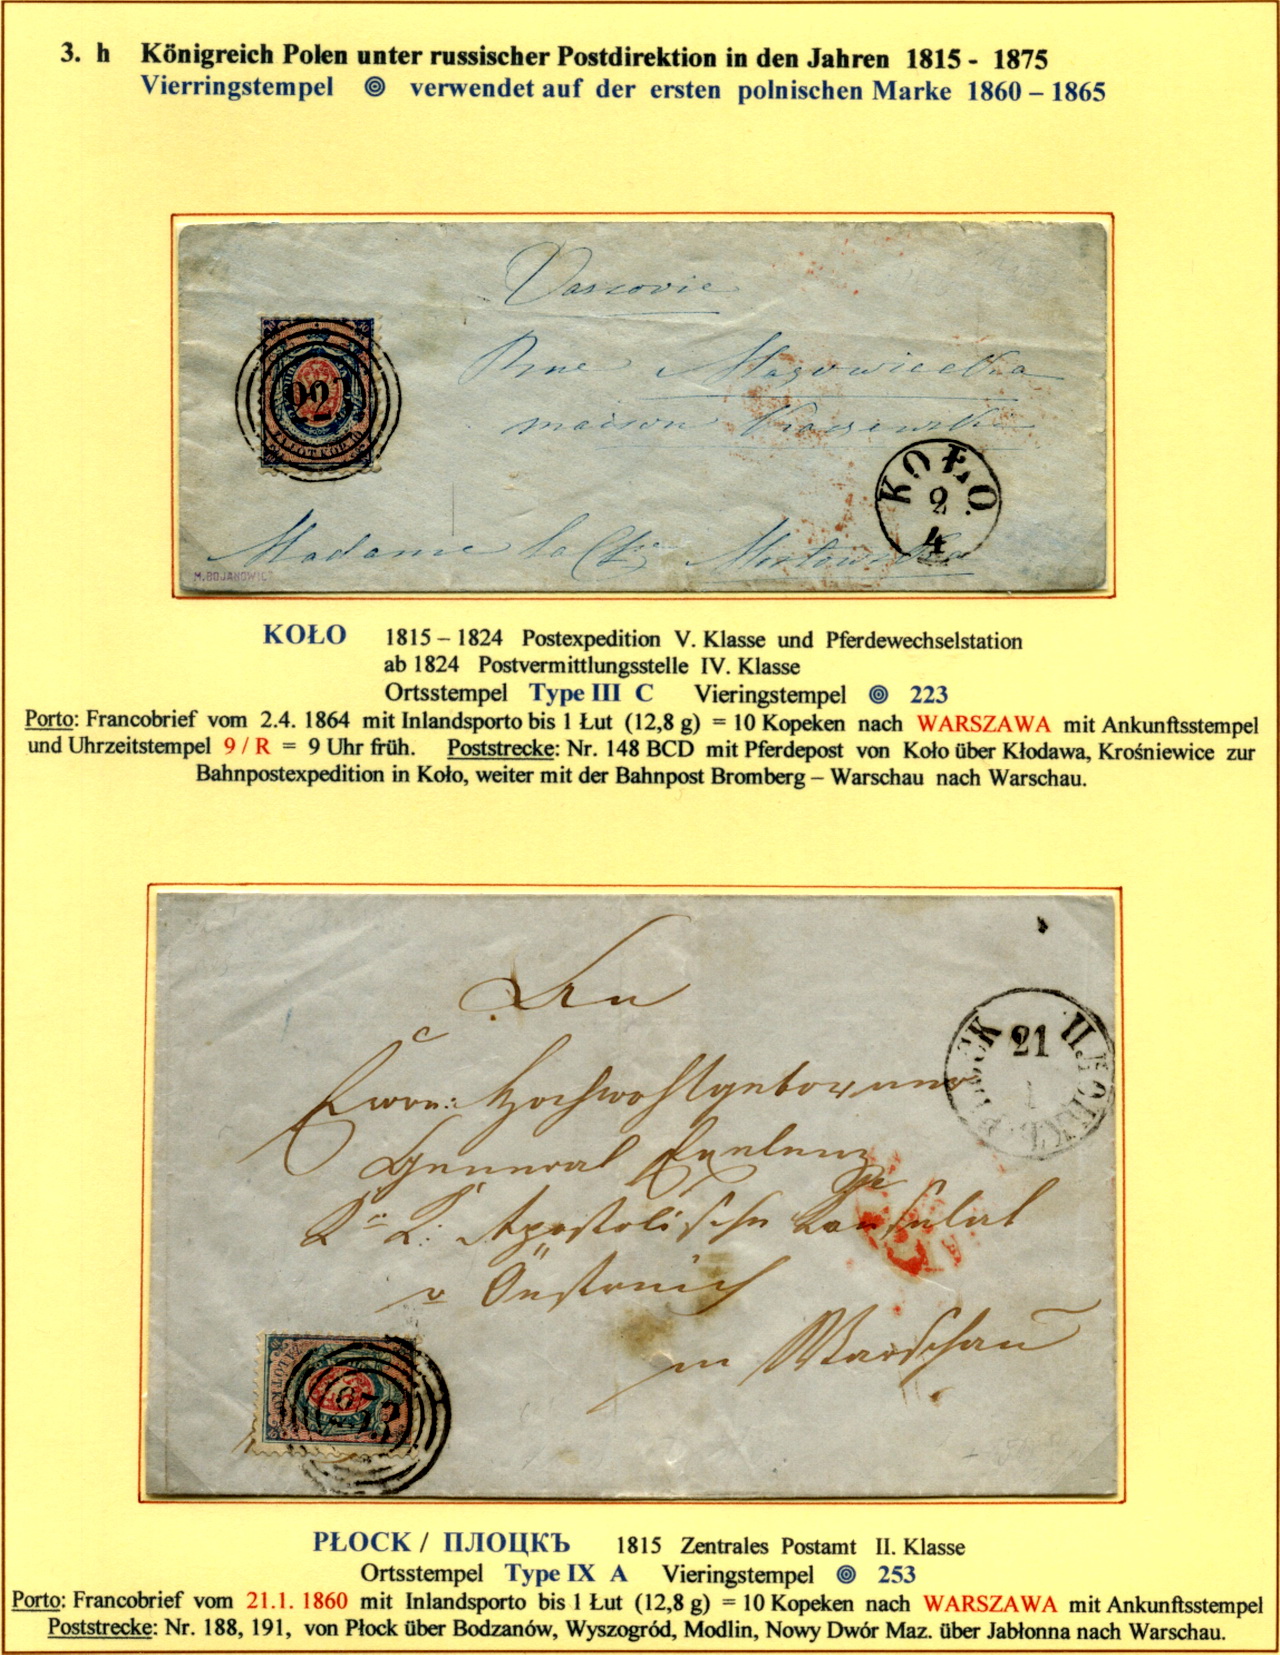 3. h Königreich Polen unter russischer Postdirektion in den Jahren 1815 - 1875
Vierringstempel verwendet auf der ersten polnischen Marke 1860 – 1865
Varsovie
Rue Mazowiecka
maison
KOŁO
2
4
Madame la
M.BOJANOWICZ
KOŁO 1815 – 1824 Postexpedition V. Klasse und Pferdewechselstation
ab 1824 Postvermittlungsstelle IV. Klasse
Ortsstempel Type III C Vieringstempel 223
Porto: Francobrief vom 2.4. 1864 mit Inlandsporto bis 1 Łut (12,8 g) = 10 Kopeken nach WARSZAWA mit Ankunftsstempel
und Uhrzeitstempel 9 / R = 9 Uhr früh. Poststrecke: Nr. 148 BCD mit Pferdepost von Koło über Kłodawa, Krośniewice zur
Bahnpostexpedition in Koło, weiter mit der Bahnpost Bromberg – Warschau nach Warschau.
21
1
Hochwohlgeboren
General
K: K: Apostolischen Konsulat
v Öestreich
in Warschau
PŁOCK / ПЛОЦКЪ 1815 Zentrales Postamt II. Klasse
Ortsstempel Type IX A Vieringstempel 253
Porto: Francobrief vom 21.1. 1860 mit Inlandsporto bis 1 Łut (12,8 g) = 10 Kopeken nach WARSZAWA mit Ankunftsstempel
Poststrecke: Nr. 188, 191, von Płock über Bodzanów, Wyszogród, Modlin, Nowy Dwór Maz. über Jabłonna nach Warschau.